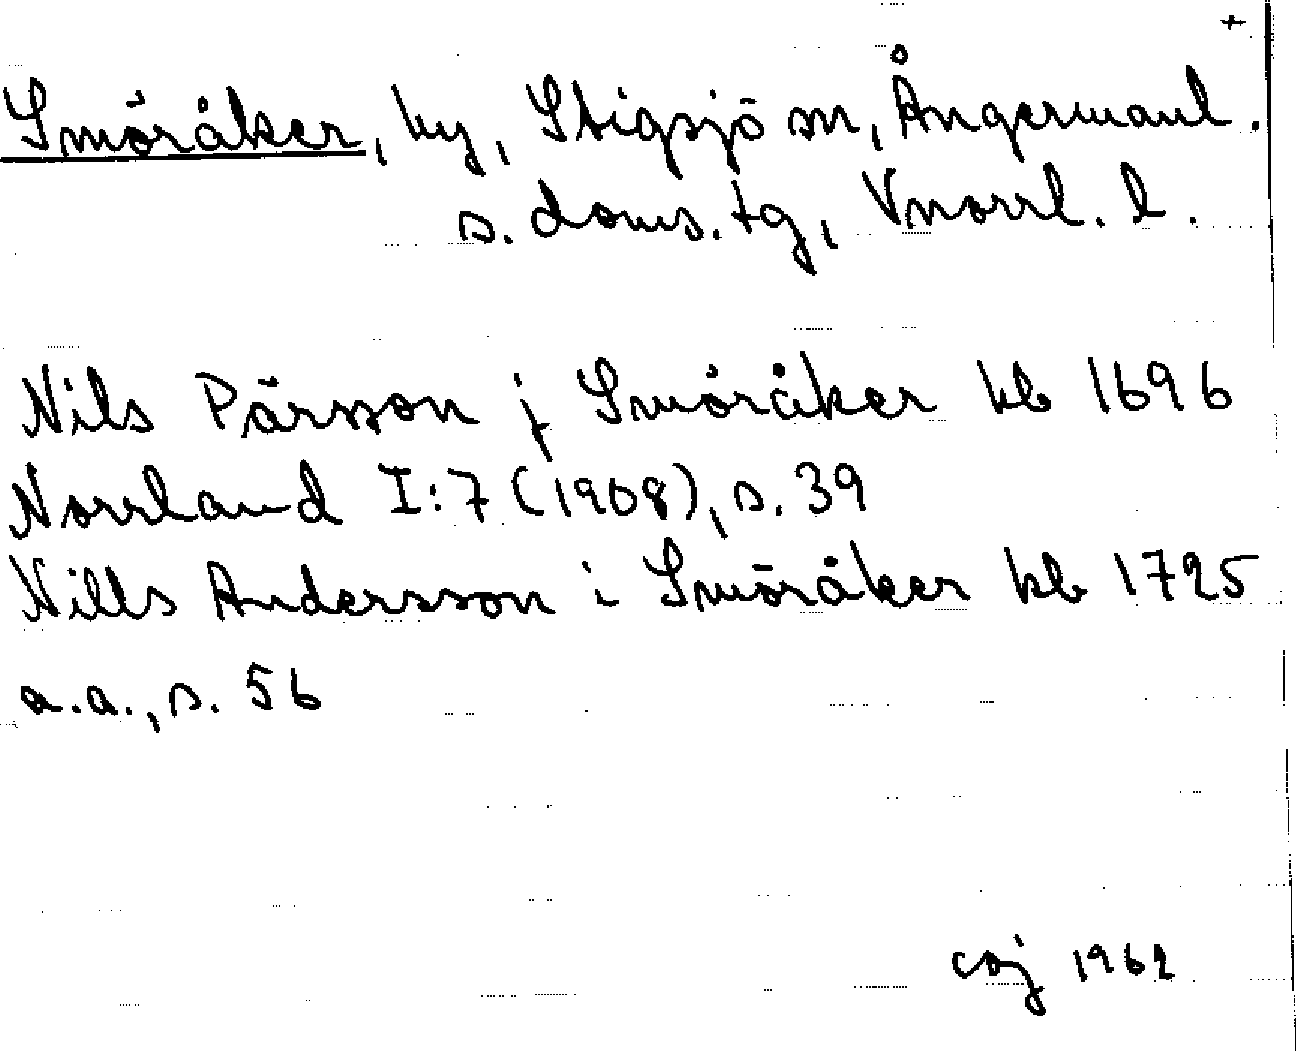 +
Smöråker, by, Stigsjö sn, Ångermanl.
s. doms. tg, Vnorrl. l.
Nils Pärsson j Smöråker kb 1696
Norrland I:7 (1908), s. 39
Nills Andersson i Smöråker kb 1725
a.a., s. 56
coj 1962